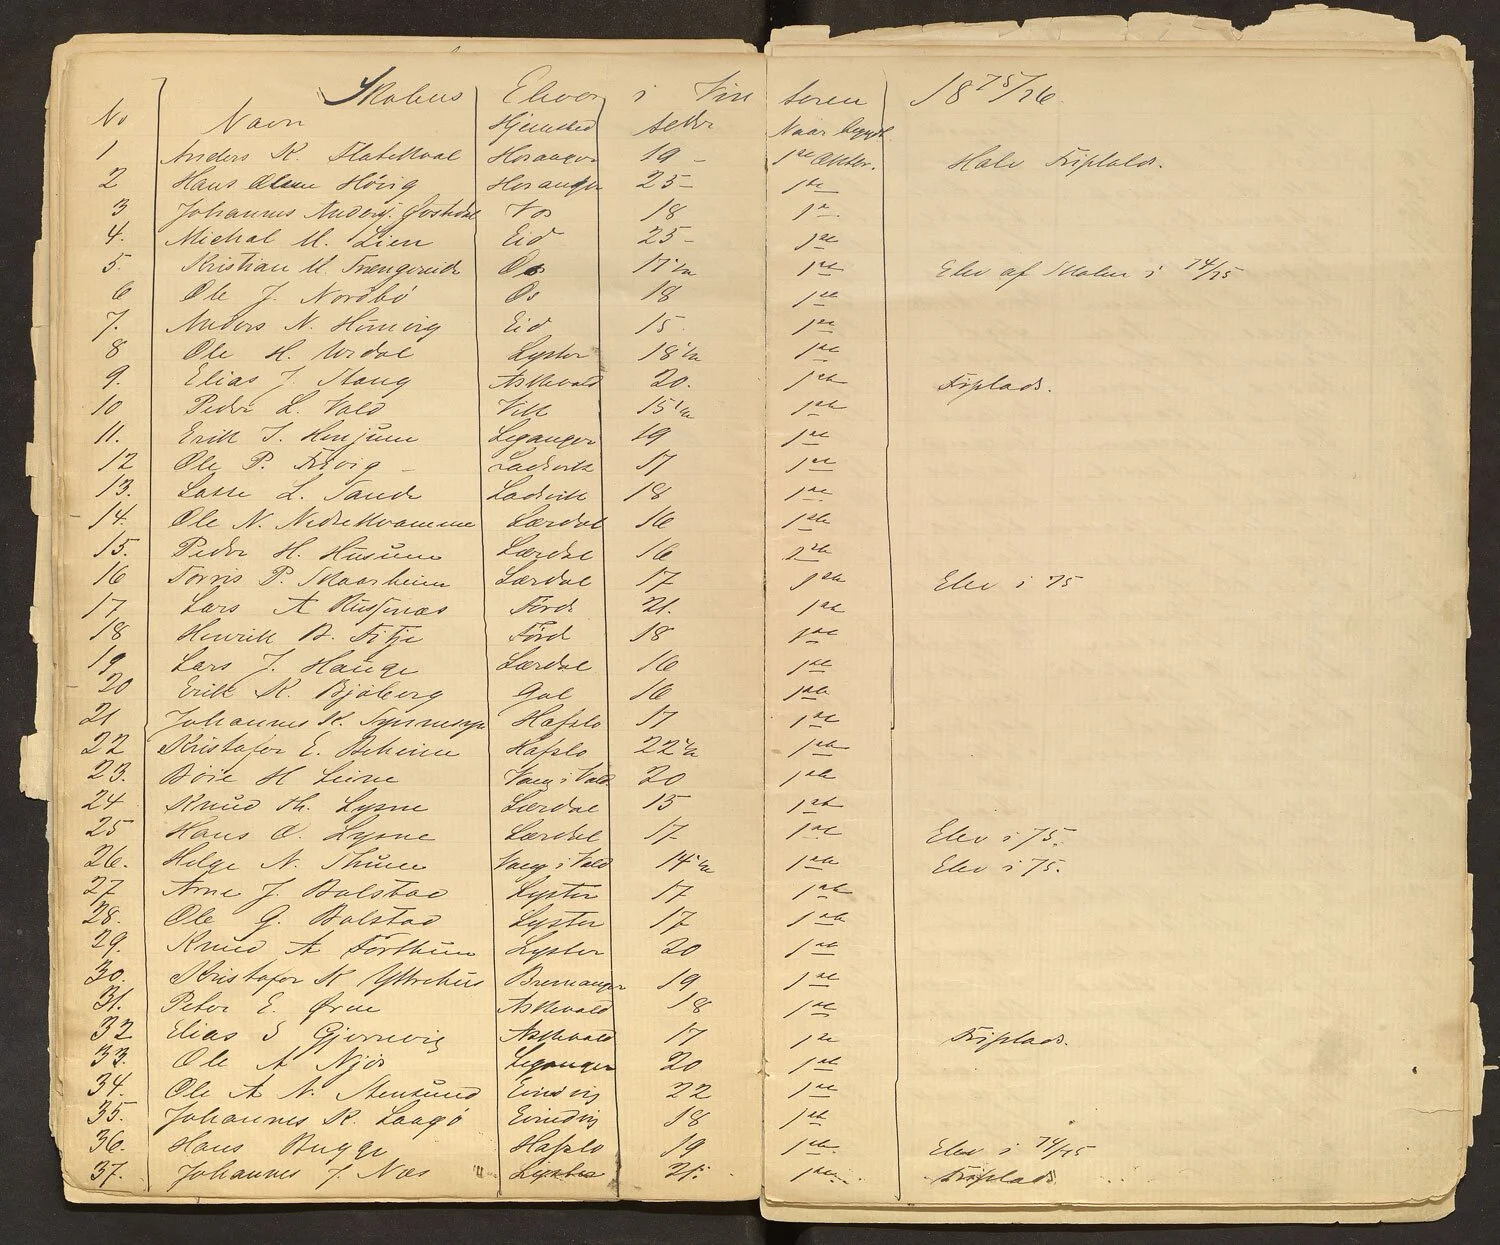 Skolens Elever i Vinteren 18 75/76
No Navn Hjemsted Alder Naar begyndt
1 Anders K. Flatekval Hosanger 19 - 1ste Oktbr. Halv Friplads.
2 Hans Olsen Høvig Hosanger 25 - 1ste
3 Johannes Anders. Vos 18 1ste
4. Michal M. Lien Eid 25 - 1ste
5. Kristian M. Os 17 1/2 1ste Elev af Skolen i 74/75
6 Ole J. Nordbø Os 18 1ste
7. Anders N. Eid 15. 1ste
8 Ole H. Urdal Lyster 18 1/2 1ste
9. Elias J. Stang Askevold 20. 1ste Friplads.
10 Peder L. Vold Vik 15 1/2 1ste
11. Erik J. Henjum Leganger 19 1ste
12 Ole P. Ladevik 17 1ste
13. Lasse L. Sande Ladevik 18 1ste
14. Ole N. Nedrekvamme Lærdal 16 1ste
15. Peder H. Husum Lærdal 16 1ste
16 Torris P. Maarheim Lærdal 17 1ste Elev i 75
17 Lars A Førde 21. 1ste
18 Henrik B. Fitje Førd 18 1ste
19 Lars J. Hauge Lærdal 16 1ste
20 Erik K. Bjøberg Gol 16 1ste
21 Johannes K. Hafslo 17 1ste
22 Kristofer E. Beheim Hafslo 22 1/2 1ste
23. Boie H Leine Vang i Vald 20 1ste
24 Knud Th. Lysne Lærdal 15 1ste
25 Hans O. Lysne Lærdal 17 1ste Elev i 75.
26. Helge N. Thune Vang i Vald 14 1/2 1ste Elev i 75.
27 Arne J Bolstad Lyster 17 1ste
28. Ole G. Bolstad Lyster 17 1ste
29. Knud A Forthun Lyster 20 1ste
30. Kristofer K Yttrehus Bremanger 19 1ste
31. Peter E. Ørne Askevold 18 1ste
32 Elias S Gjerrevig Askevold 17 1ste Friplads.
33. Ole A Njøs Leganger 20 1ste
34. Ole A N. Stensund Eivindvig 22 1ste
35. Johannes R. Laagø Eivindvig 18 1ste
36. Hans Bugge Hafslo 19 1ste Elev i 74/75
37. Johannes J. Næs Lyster 21. 1ste Friplads